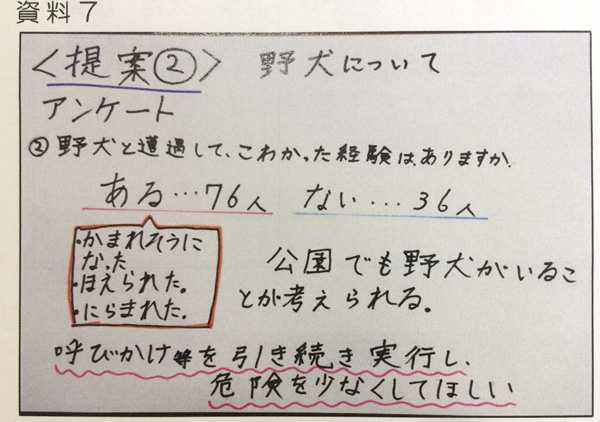 資料７
＜提案②＞ 野犬について
アンケート
②野犬と遭遇して、こわかった経験は、ありますか。
ある…76人 ない…36人
・かまれそうに
なった
・ほえられた。
・にらまれた.
公園でも野犬がいるこ
とが考えられる。
呼びかけ等を引き続き実行し、
危険を少なくしてほしい